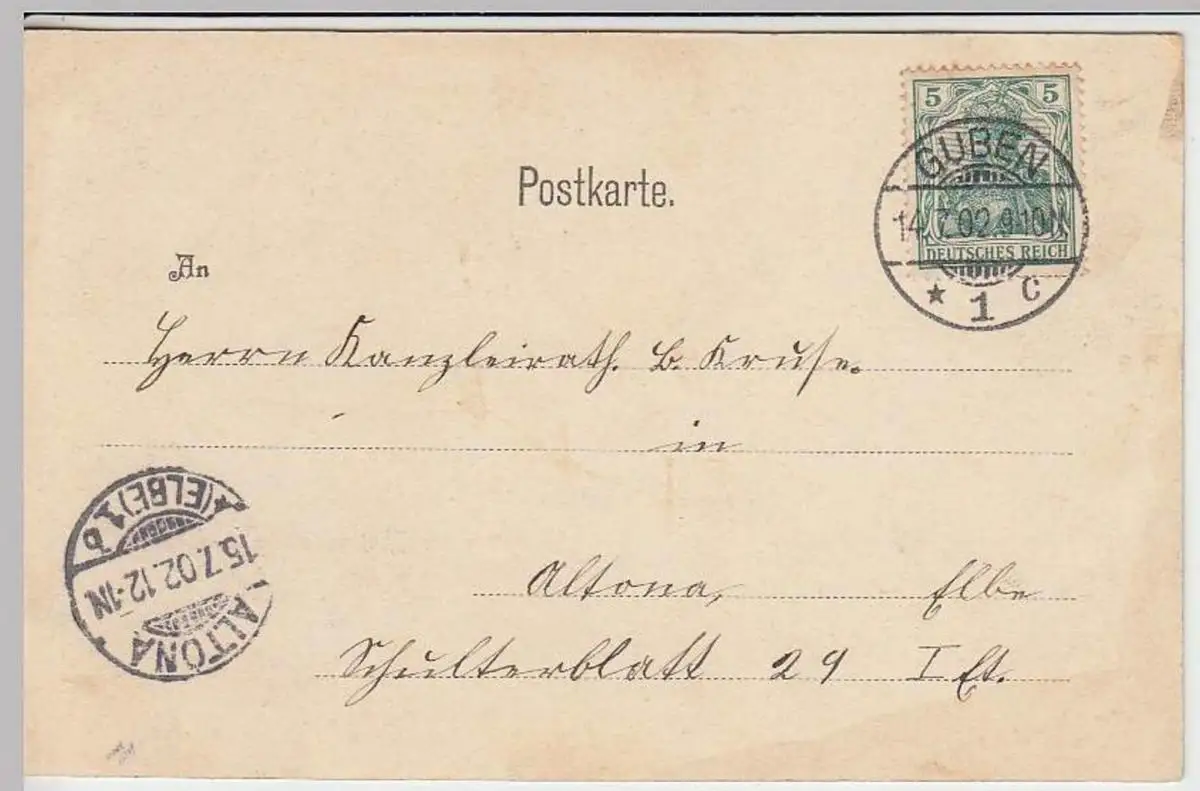 5 5
DEUTSCHES REICH
GUBEN
14.7.02.9-10N
* 1 c
Postkarte.
An
Herrn Kanzleirath. B. Kruse.
in
Altona, Elbe
Schulterblatt 29 I Et.
ALTONA
15.7.02.12-1N
* (ELBE) 1 b